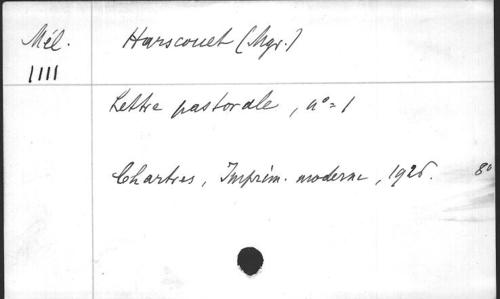 Mél. Harscouet (Mgr.)
1111
Lettre pastorale, n° = 1
Chartres, Imprim. moderne, 1926. 8°